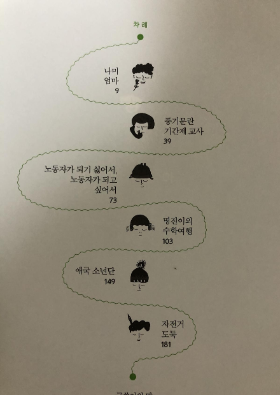 차례
나의
엄마
9
풍기문란
기간제 교사
39
노동자가 되기 싫어서,
노동자가 되고
싶어서
73
명진이의
수학여행
103
애국 소년단
149
자전거
도둑
181